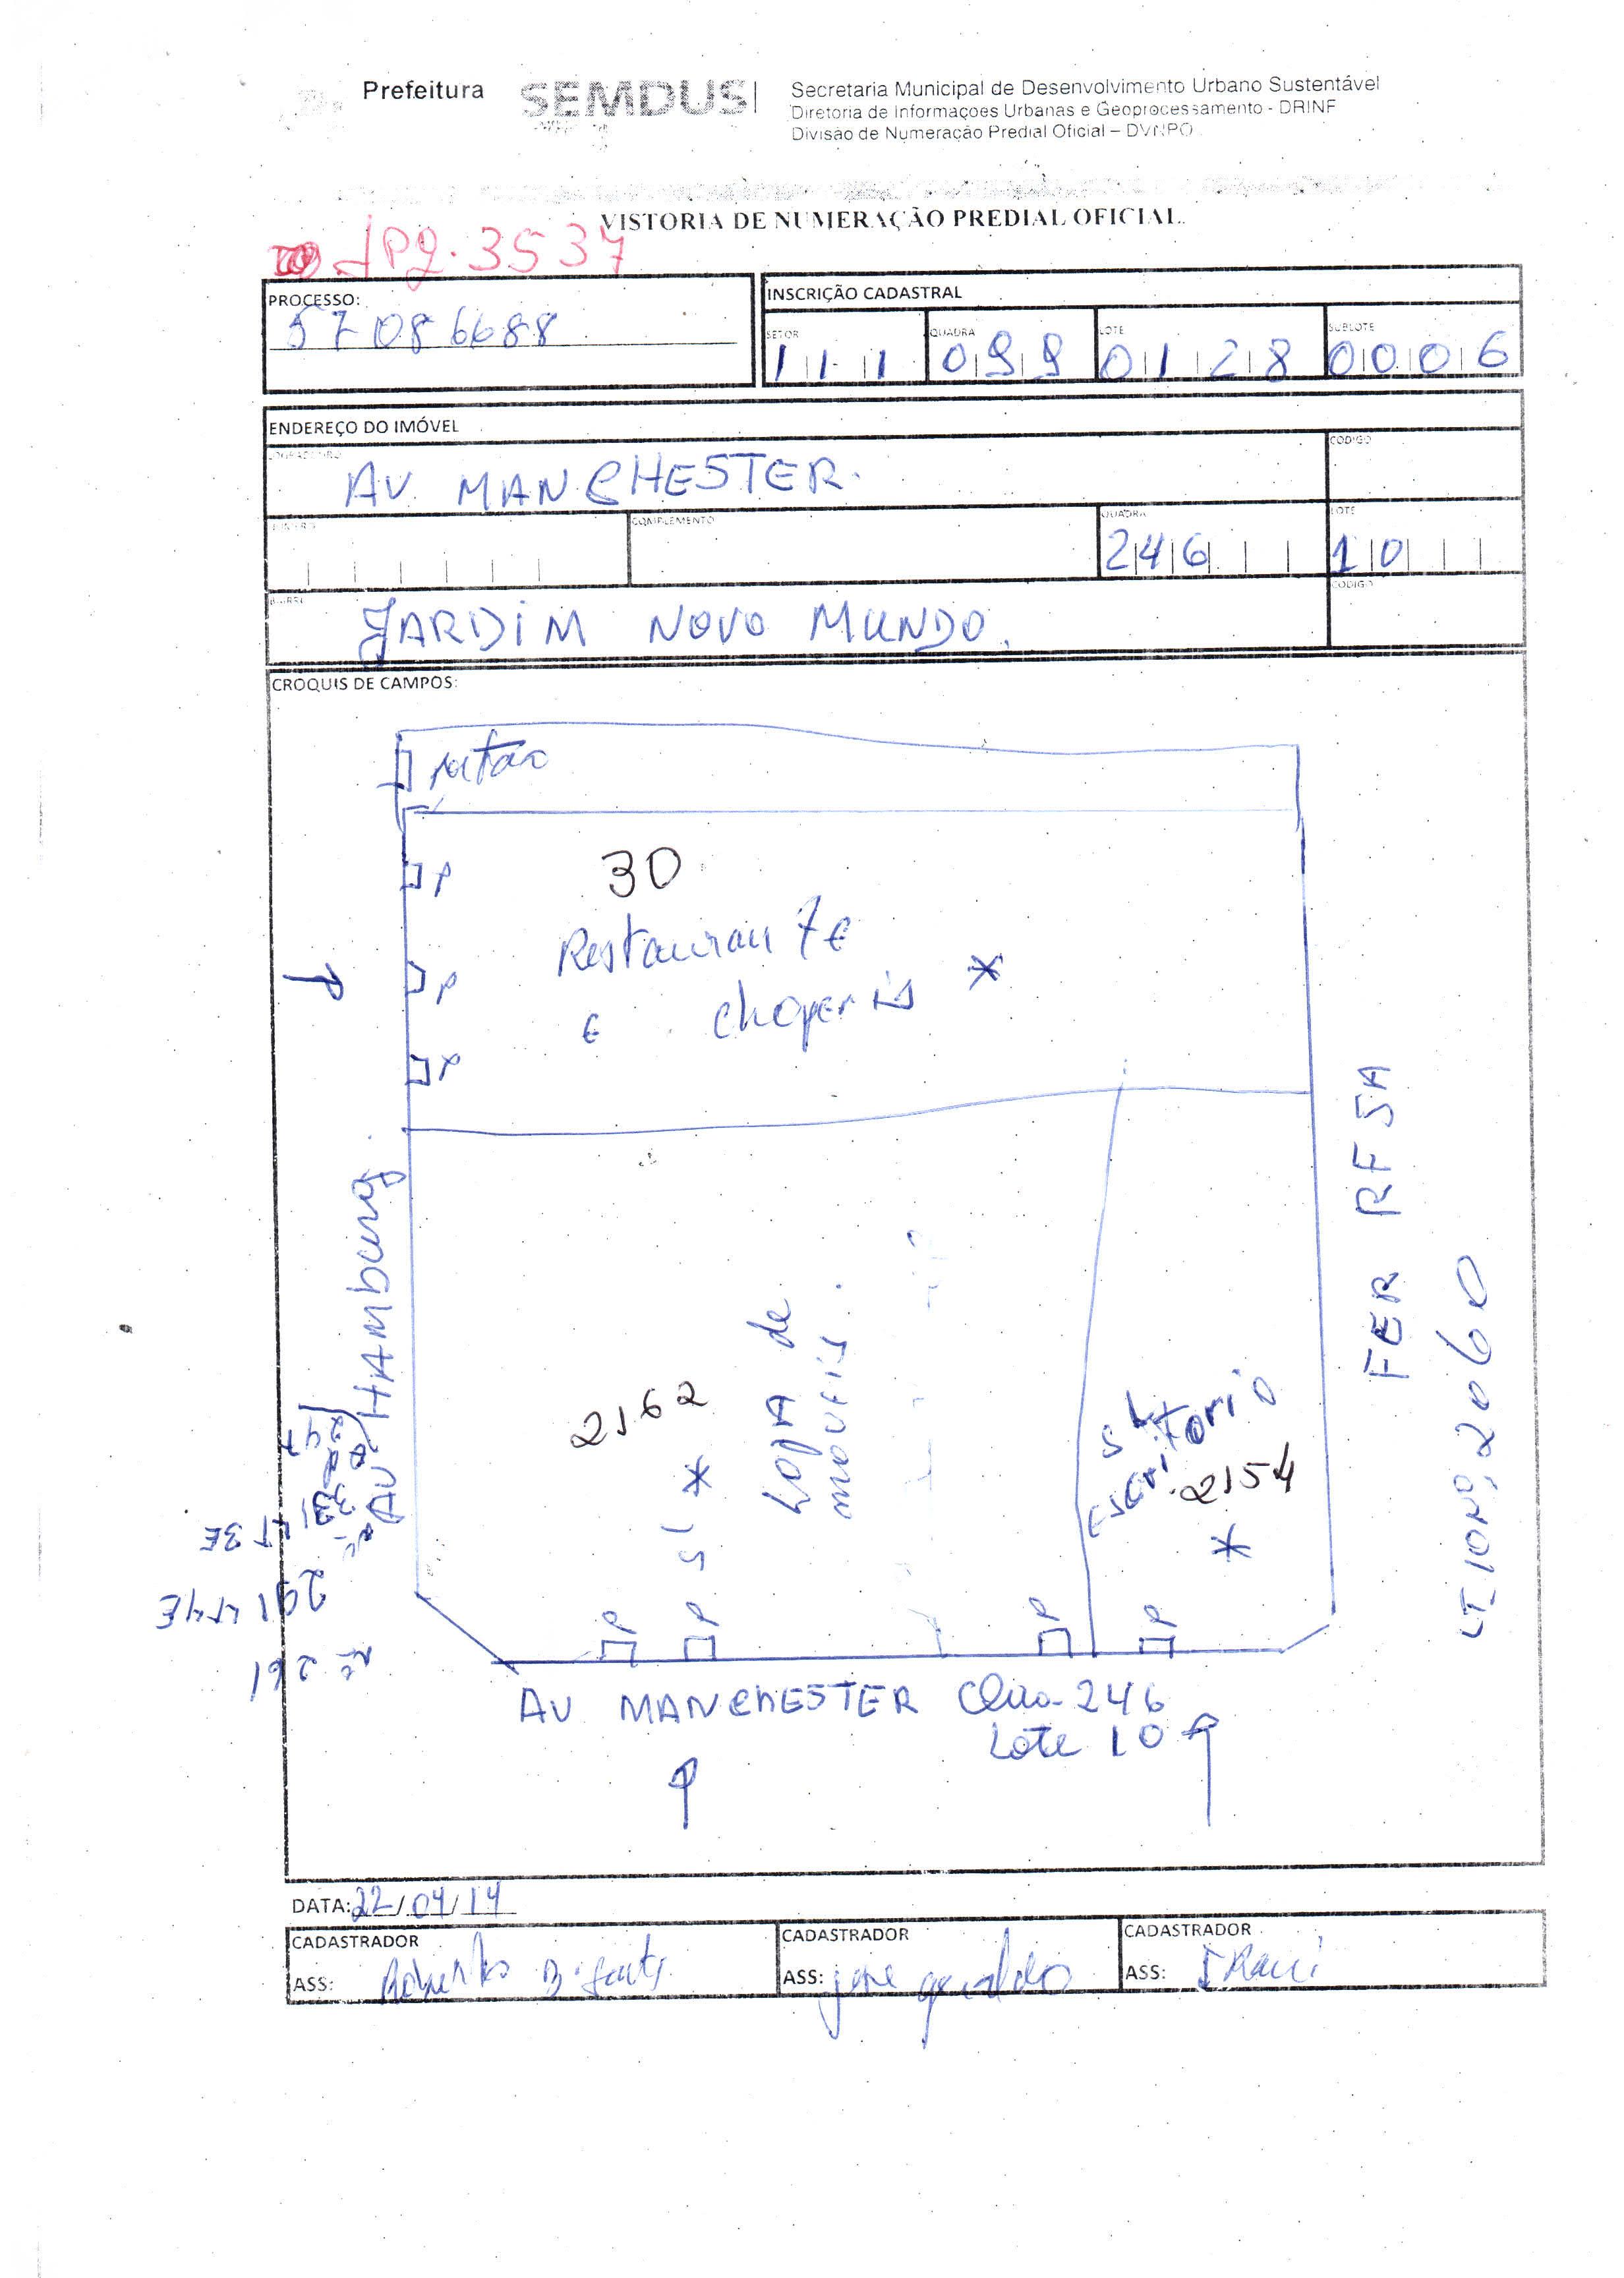 Prefeitura SEMDUS
Secretaria Municipal de Desenvolvimento Urbano Sustentável
Diretoria de Informaçoes Urbanas e Geoprocessamento - DRINF
Divisão de Numeração Predial Oficial – DVNPO
VISTORIA DE NUMERAÇÃO PREDIAL OFICIAL.
JPG.3537
PROCESSO:
57086688
INSCRIÇÃO CADASTRAL
SETOR QUADRA LOTE SUBLOTE
111 099 0128 0006
ENDEREÇO DO IMÓVEL
LOGRADOURO CODIGO
AV. MANCHESTER.
NUMERO COMPLEMENTO QUADRA LOTE
246 10
BAIRRO CODIGO
JARDiM NOVO MUNDO.
CROQUIS DE CAMPOS:
P
30
Restauran te
P
e choperis *
P
AV HAmburg
FER RFSA
LT 10 Nº: 2060
2162
sl *
LOJA de
moveis.
sl
Escritorio
2154
*
47
LT 3E
291 LT 4E
Nº 261
P P P P
AV MANChESTER Qua-246
Lote 10
DATA: 22/04/14
CADASTRADOR CADASTRADOR CADASTRADOR
ASS: ASS: jose geraldo ASS: IRaci